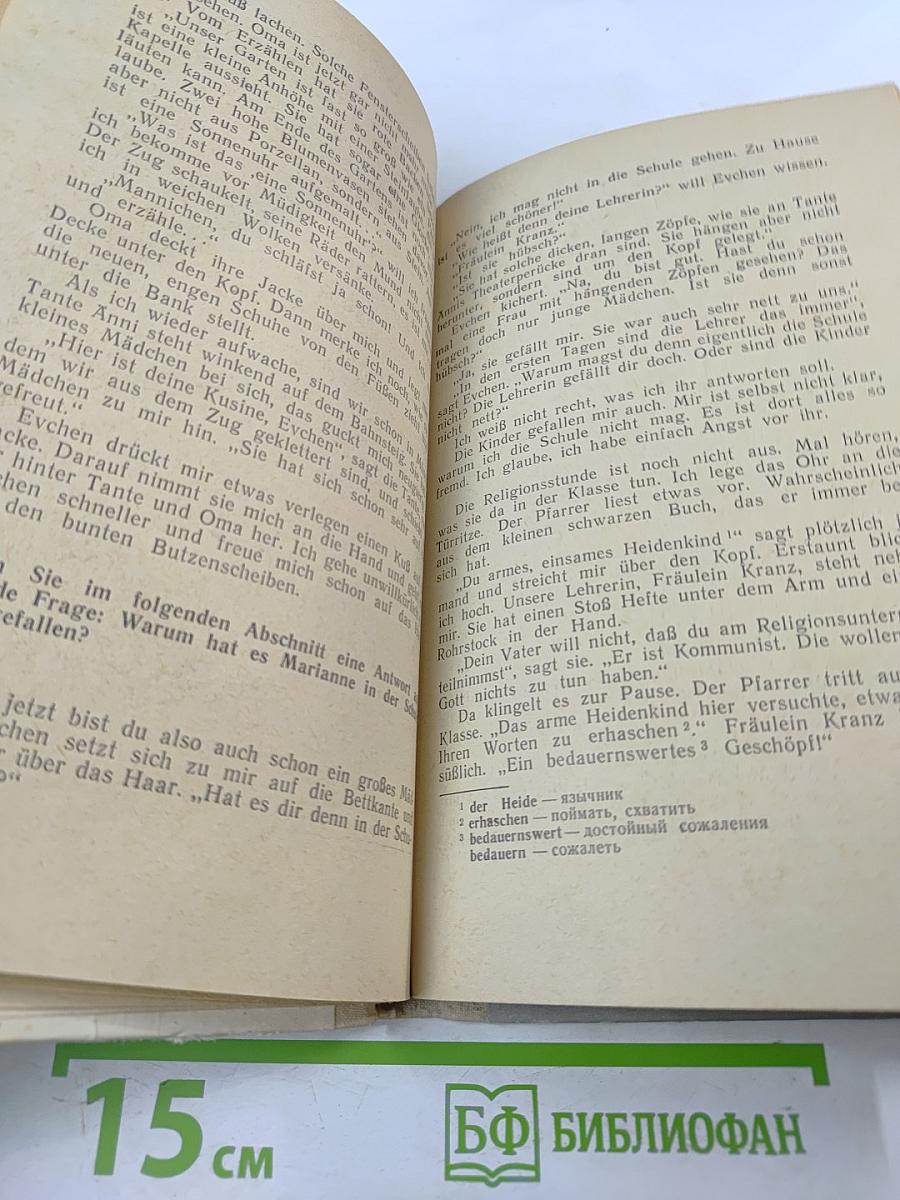 uß lachen. Solche Fensterscheiben
sehen. Oma ist jetzt gar nicht
Vom Erzählen hat sie rote
„Unser Garten ist fast so groß
ist eine kleine Anhöhe mit einer
Kapelle aussieht. Sie hat sogar
läuten kann. Am Ende des Gartens ist
laube. Zwei hohe Blumenvasen stehen
aber nicht aus Porzellan, sondern aus
ist eine Sonnenuhr aufgemalt...“
„Was ist das ‚eine Sonnenuhr‘?“ will ich
ich bekomme vor Müdigkeit den Mund nicht
Der Zug schaukelt, seine Räder rattern, es ist
ich in weichen Wolken versänke.
„Mannichen, du schläfst ja schon! Und
erzähle...“
Oma deckt ihre Jacke über mich und legt
und
Decke unter den Kopf. Dann merke ich noch, wie
die neuen, engen Schuhe von den Füßen zieht
unter die Bank stellt.
Als ich wieder aufwache, sind wir schon in
Tante Änni steht winkend auf dem Bahnsteig. Sie
kleines Mädchen bei sich, das guckt mich neugierig
„Hier ist deine Kusine, Evchen‘, sagt die Tante,
dem wir aus dem Zug geklettert sind, und schiebt
Mädchen zu mir hin. „Sie hat sich schon sehr auf
gefreut.“
Evchen drückt mir etwas verlegen einen Kuß auf
acke. Darauf nimmt sie mich an die Hand und geht
hinter Tante und Oma her. Ich gehe unwillkürlich
chen schneller und freue mich schon auf das
den bunten Butzenscheiben.
Sie im folgenden Abschnitt eine Antwort
de Frage: Warum hat es Marianne in der Schule
gefallen?
jetzt bist du also auch schon ein großes Mäd-
chen setzt sich zu mir auf die Bettkante und
über das Haar. „Hat es dir denn in der Schu-
„Nein, ich mag nicht in die Schule gehen. Zu Hause
ist es viel schöner!“
„Wie heißt denn deine Lehrerin?“ will Evchen wissen.
„Fräulein Kranz.“
„Ist sie hübsch?“
„Sie hat solche dicken, langen Zöpfe, wie sie an Tante
Ännis Theaterperücke dran sind. Sie hängen aber nicht
herunter, sondern sind um den Kopf gelegt.“
Evchen kichert. „Na, du bist gut. Hast du schon
mal eine Frau mit hängenden Zöpfen gesehen? Das
tragen doch nur junge Mädchen. Ist sie denn sonst
hübsch?“
„Ja, sie gefällt mir. Sie war auch sehr nett zu uns.“
„In den ersten Tagen sind die Lehrer das immer“,
sagt Evchen. „Warum magst du denn eigentlich die Schule
nicht? Die Lehrerin gefällt dir doch. Oder sind die Kinder
nicht nett?“
Ich weiß nicht recht, was ich ihr antworten soll.
Die Kinder gefallen mir auch. Mir ist selbst nicht klar,
warum ich die Schule nicht mag. Es ist dort alles so
fremd. Ich glaube, ich habe einfach Angst vor ihr.
Die Religionsstunde ist noch nicht aus. Mal hören,
was sie da in der Klasse tun. Ich lege das Ohr an die
Türritze. Der Pfarrer liest etwas vor. Wahrscheinlich
aus dem kleinen schwarzen Buch, das er immer bei
sich hat.
„Du armes, einsames Heidenkind¹“ sagt plötzlich
mand und streicht mir über den Kopf. Erstaunt blic
ich hoch. Unsere Lehrerin, Fräulein Kranz, steht neb
mir. Sie hat einen Stoß Hefte unter dem Arm und ei
Rohrstock in der Hand.
„Dein Vater will nicht, daß du am Religionsunterr
teilnimmst“, sagt sie. „Er ist Kommunist. Die wollen
Gott nichts zu tun haben.“
Da klingelt es zur Pause. Der Pfarrer tritt au
Klasse. „Das arme Heidenkind hier versuchte, etwa
Ihren Worten zu erhaschen².“ Fräulein Kranz
süßlich. „Ein bedauernswertes³ Geschöpf!“
¹ der Heide — язычник
² erhaschen — поймать, схватить
³ bedauernswert — достойный сожаления
bedauern — сожалеть
15 см
БФ БИБЛИОФАН